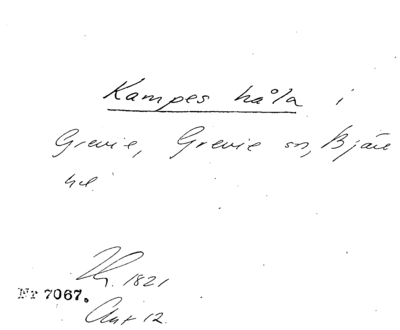 Kampes håla i
Grevie, Grevie sn, Bjäre
hd.
1821
Nr 7067.
12.